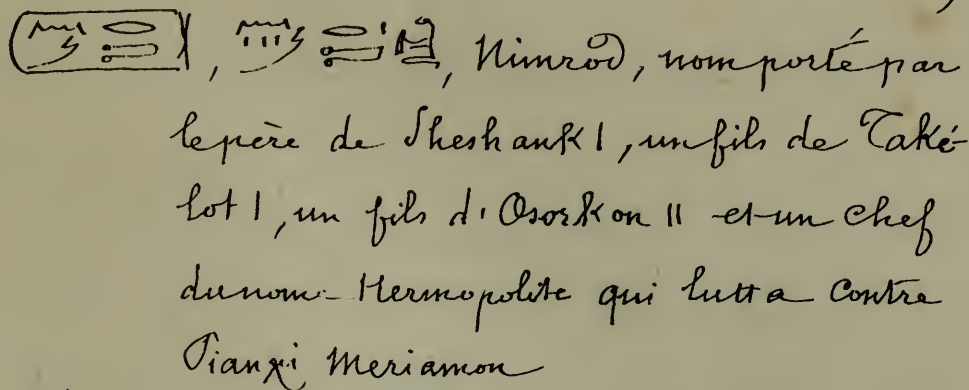 , , Nimrod, nom porté par
le père de Sheshank I, un fils de Také-
lot I, un fils d'Osorkon II et un chef
du nome Hermopolite qui lutta contre
Pianχi Meriamon